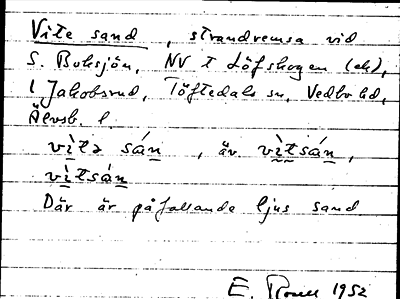 Vite sand, strandremsa vid
S. Boksjön, NV t Löfskogen (ek),
i Jakobsrud, Töftedals sn, Vedbo hd,
Älvsb. l.
vìtə sán, äv. vìtsán,
vìtsán
Där är påfallande ljus sand
E. 1952